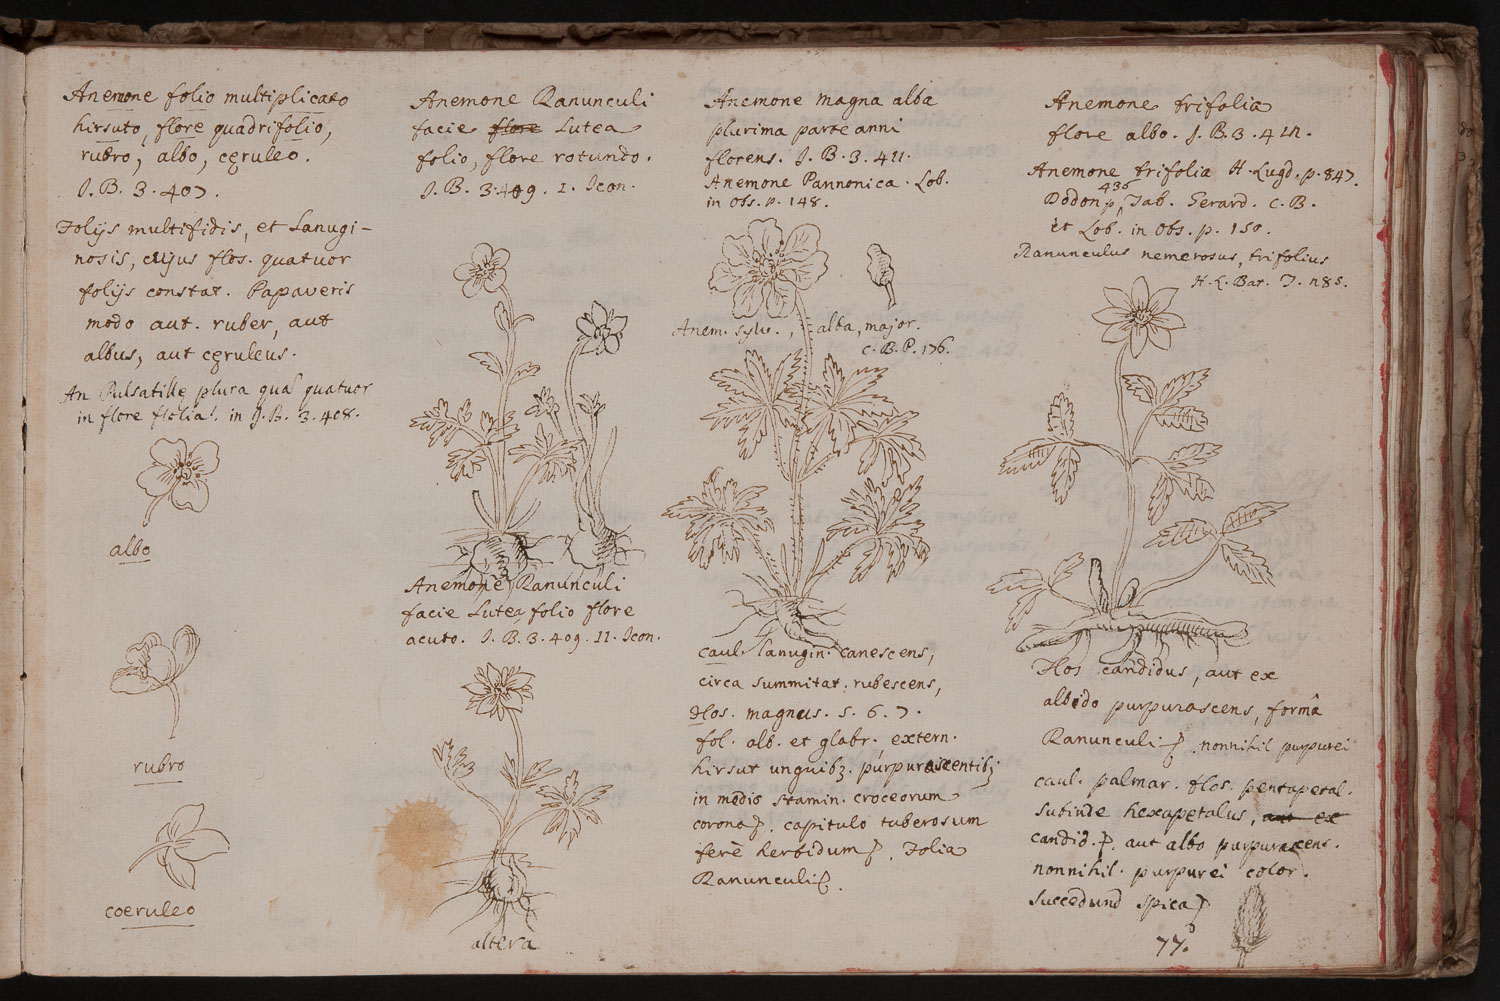 Anemone folio multiplicato
hirsuto, flore quadrifolio,
rubro, albo, cęruleo.
J. B. 3. 407.
Folijs multifidis, et Lanugi-
nosis, cujus flos. quatuor
folijs constat. Papaveris
modo aut. ruber, aut
albus, aut cęruleus.
An Pulsatille plura qua quatuor
in flore folia. in J. B. 3. 408.
albo
rubro
coeruleo
Anemone Ranunculi
facie flore Lutea
folio, flore rotundo.
J. B. 3. 409. I. Icon.
Anemone Ranunculi
facie Lutea folio flore
acuto. J. B. 3. 409. II. Icon.
altera
Anemone magna alba
plurima parte anni
florens. J. B. 3. 411.
Anemone Pannonica. Lob.
in Obs. p. 148.
Anem. sylv., alba, major.
C. B. P. 176.
caul. lanugin. canescens,
circa summitat. rubescens,
Flos. magnus. 5. 6. 7.
fol. alb. et glabr. extern.
hirsut unguibz. purpurascentibz
in medio stamin. croceorum
corona. capitulo tuberosum
ferè herbidum. Folia
Ranunculi.
Anemone trifolia
flore albo. J. B. 3. 412.
Anemone trifolia H. Lugd. p. 847.
Dodon p. 436, Tab. Gerard. C. B.
et Lob. in Obs. p. 150.
Ranunculus nemerosus, trifolius
H. L. Bat. J. 185.
Flos candidus, aut ex
albido purpurascens, formâ
Ranunculi. nonnihil purpurei
caul. palmar. flos. pentapetal.
subinde hexapetalus, aut ex
candid. aut albo purpurascens.
nonnihil. purpurei color.
succedund spica
77.